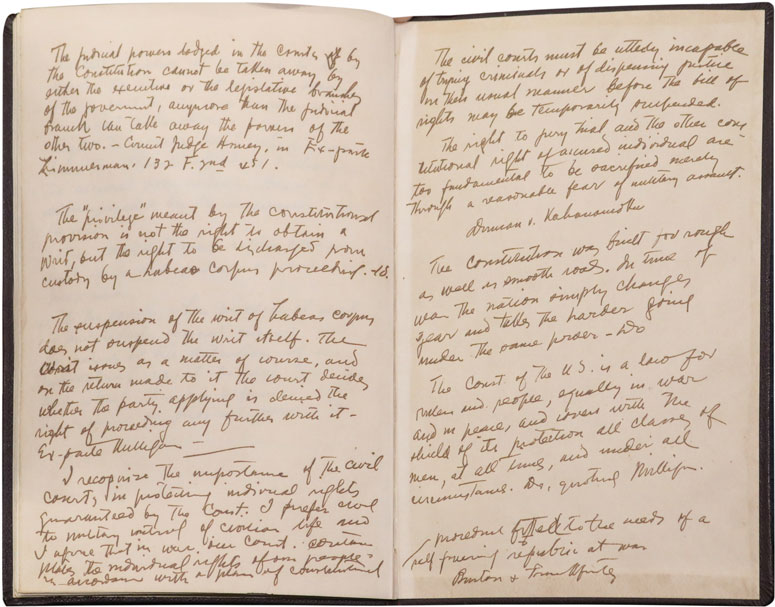 The judicial powers lodged in the courts by
the Constitution cannot be taken away by
either the executive or the legislative branches
of the government, anymore than the judicial
branch can take away the powers of the
other two. - Circuit Judge Haney, in Ex-parte
Zimmerman. 132 F. 2nd 451.
The "privilege" meant by the constitutional
provision is not the right to obtain a
writ, but the right to be discharged from
custody by a habeas corpus proceeding. -
The suspension of the writ of habeas corpus
does not suspend the writ itself. The
writ issues as a matter of course, and
on the return made to it the court decides
whether the party applying is denied the
right of proceeding any further with it -
Ex-parte Milligan -
I recognize the importance of the civil
courts in protecting individual rights
guaranteed by the Const. I prefer civil
to military control of civilian life and
I agree that in war our Const. contem
plates the individual rights of our people
in accordance with a plan of constitutional
The civil courts must be utterly incapable
of trying criminals or of dispensing justice
in their usual manner before the bill of
rights may be temporarily suspended.
The right to jury trial and the other cons
titutional right of accused individual are
too fundamental to be sacrificed merely
through a reasonable fear of military assault.
Duncan v. Kahanamoku
The constitution was built for rough
as well as smooth roads. In time of
war the nation simply changes
gear and takes the harder going
under the same power - Do
The Const. of the U.S. is a law for
rulers and people, equally in war
and in peace, and covers with the
shield of its protection all classes of
men, at all times, and under all
circumstances. Do, quoting Milligan.
fitted to the needs of a
self governing republic at war
Burton & Frankfurter